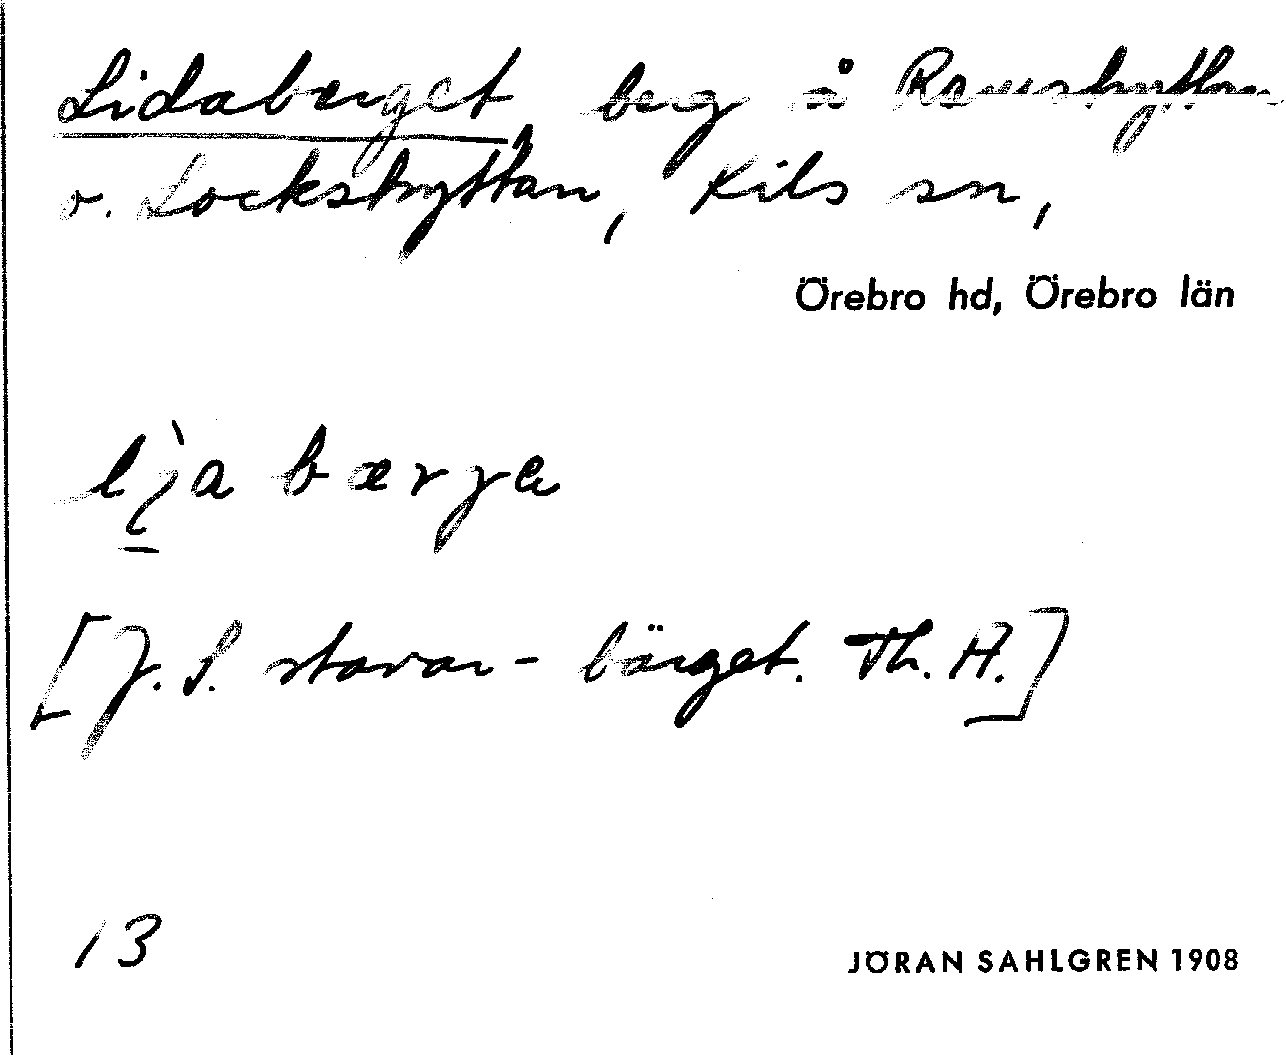 Lidaberget, berg å Ramshyttan
o. Lockshyttan, Kils sn,
Örebro hd, Örebro län
bærγa
[J. S. stavar - bärget. Th. A.]
13
JÖRAN SAHLGREN 1908